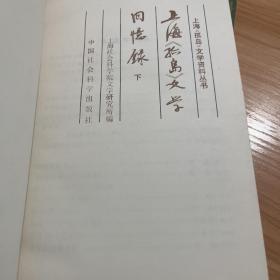 上海“孤岛”文学资料丛书
上海“孤岛”文学
回忆录 下
上海社会科学院文学研究所编
中国社会科学出版社